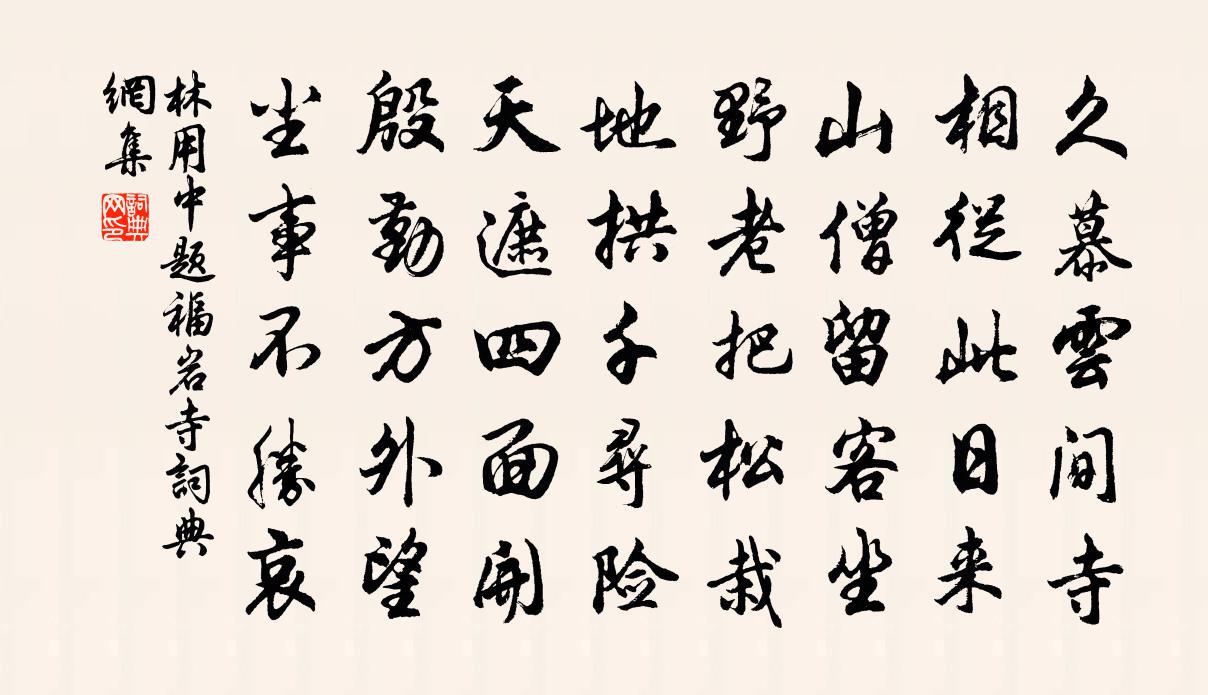 久慕雲间寺
相從此日来
山僧留客坐
野老把松栽
地拱千尋险
天遮四面開
殷勤方外望
尘事不勝哀
林用中题福岩寺詞典
網集
詞典
网印